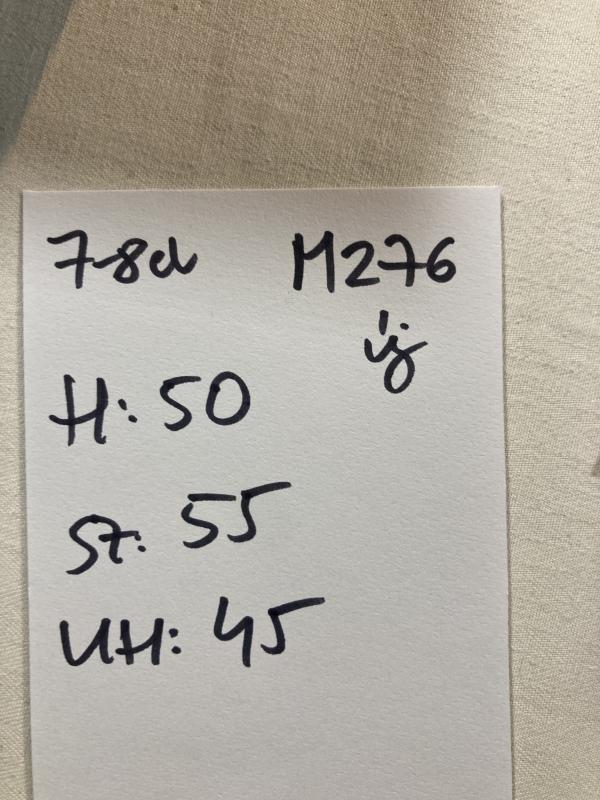 7-8d M276
új
H: 50
Sz: 55
UH: 45